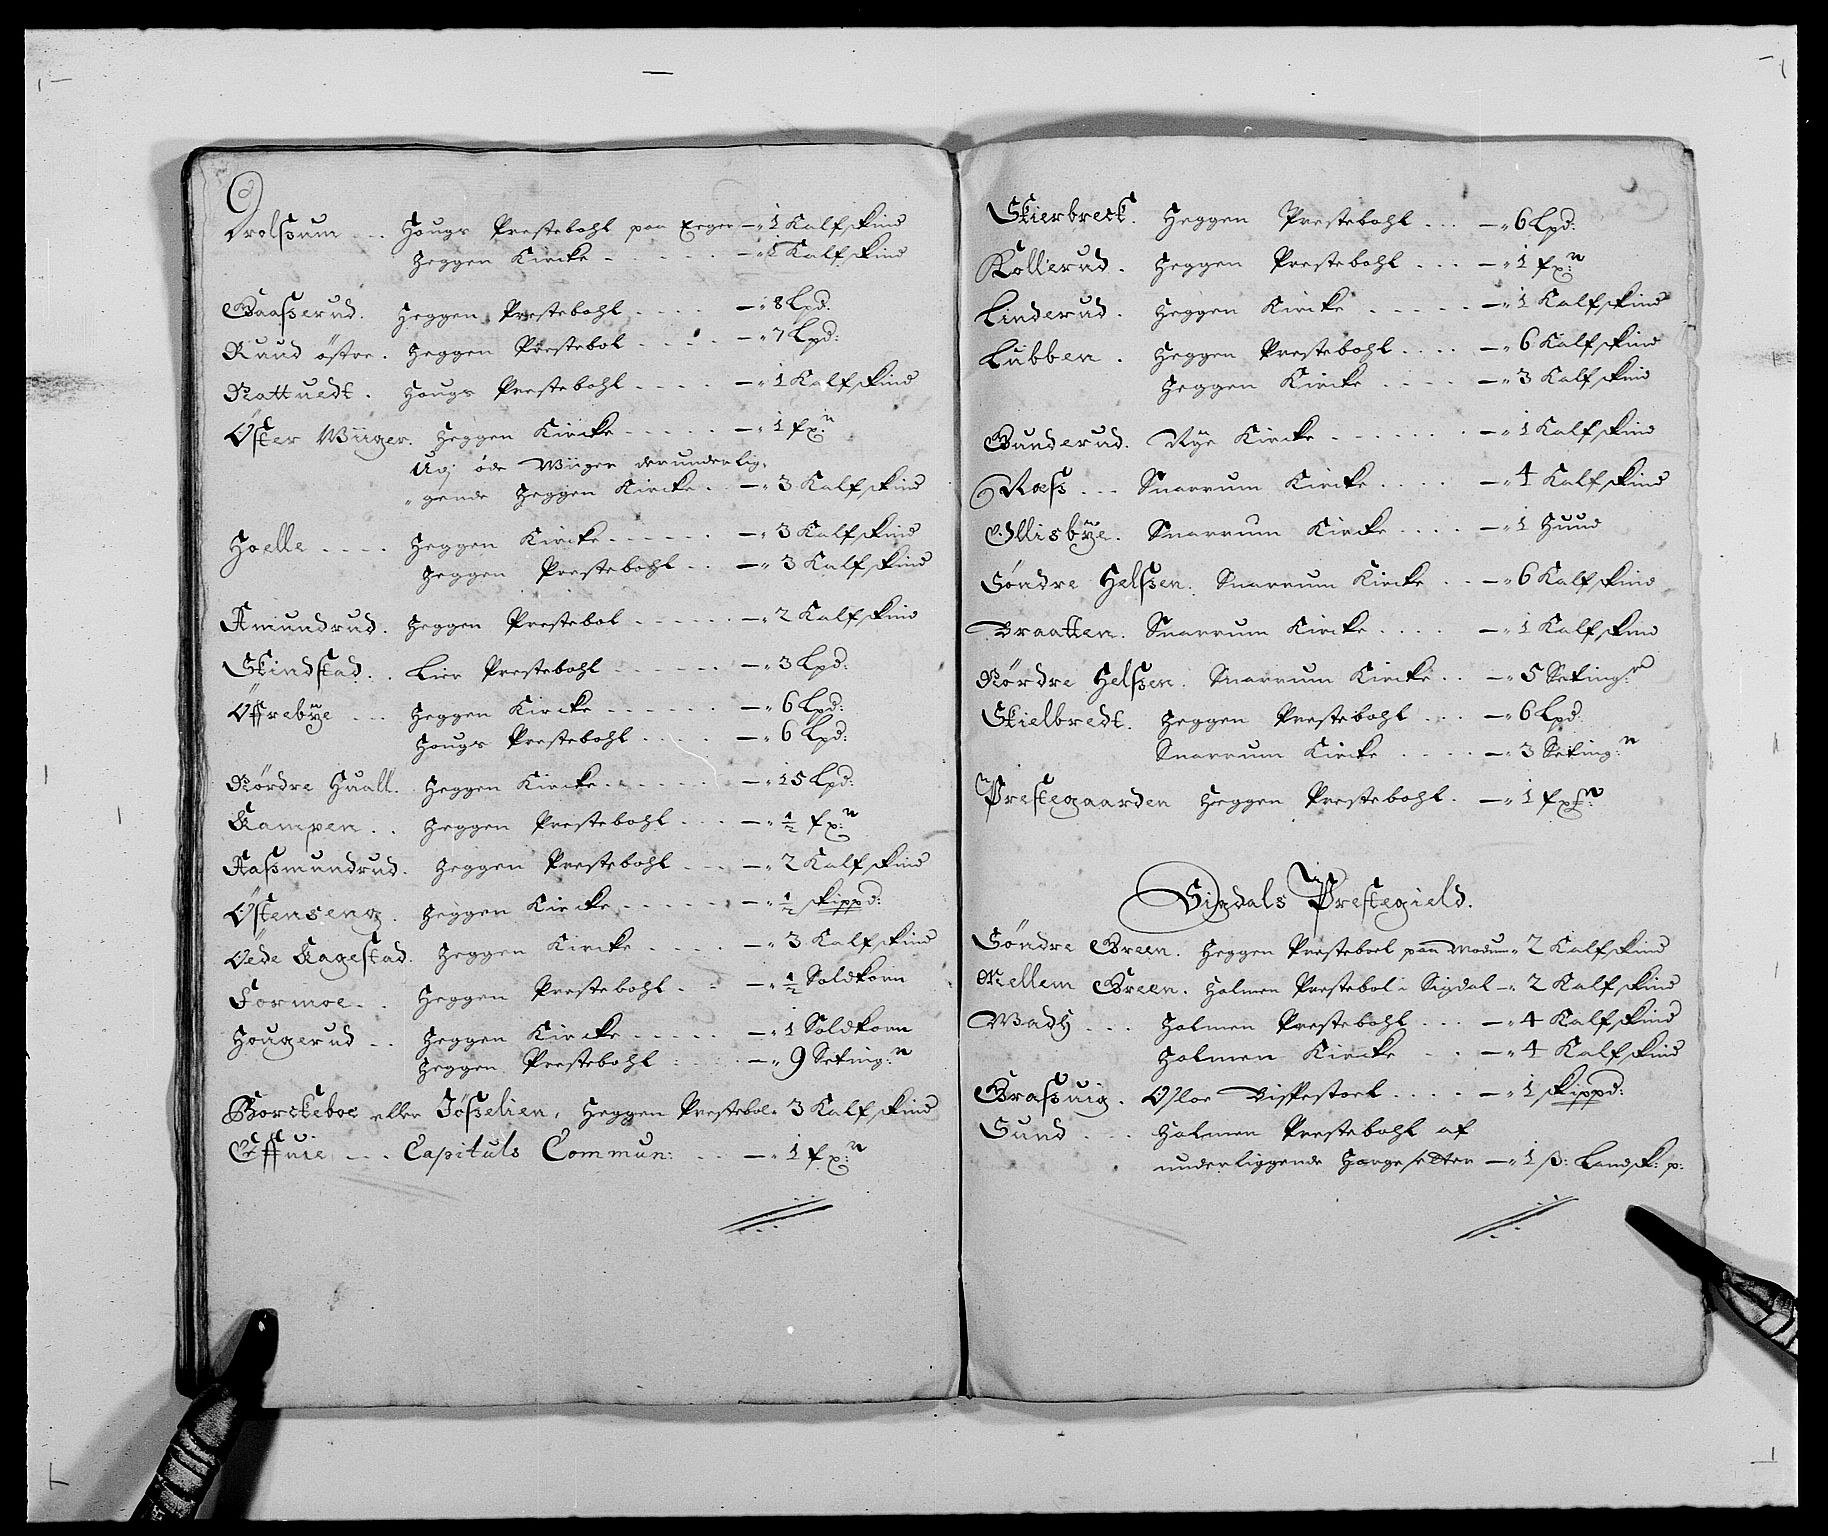 Drolsum ... Hougs Prestebohl paa Eeger —„ 1 Kalfskind
Heggen Kircke . . . . . —„ 1 Kalfskind
Gaasserud. Heggen Prestebohl . . . . —„ 8 Lpd:
Ruud östre. Heggen Prestebol . . . . —„ 7 Lpd:
Nattuedt. Hougs Prestebohl . . . . —„ 1 Kalfskind
Öster Wiiger. Heggen Kircke . . . . . —„ 1 fx:n
Udj öde Wiiger derunder lig„
„gende Heggen Kircke . —„ 3 Kalfskind
Hoelle . . . . Heggen Kircke . . . . . . —„ 3 Kalfskind
Heggen Prestebohl . . —„ 3 Kalfskind
Amundrud. Heggen Prestebol . . . . . . —„ 2 Kalfskind
Skindstad. . Lier Prestebohl . . . . . . —„ 3 Lpd:
Öffrebÿe ... Heggen Kircke . . . . . . —„ 6 Lpd:
Hougs Prestebohl . . . . —„ 6 Lpd:
Nördre Huall. Heggen Kircke . . . . . . —„ 15 Lpd:
Kampen. . Heggen Prestebohl . . . —„ ½ fx:n
Aassmundrud. Heggen Prestebohl . . . —„ 2 Kalfskind
Östenseng. Heggen Kircke . . . . . —„ ½ skippd:
Öede Kagestad. Heggen Kircke . . . . —„ 3 Kalfskind
Formoe. . Heggen Prestebohl . . —„ ½ Soldkorn
Hougerud . . Heggen Kircke . . . . . —„ 1 Soldkorn
Heggen Prestebohl . . . . —„ 9 Seting:n
Borckeboe eller Jösselien, Heggen Prestebol„ 3 Kalfskind
Effuie ... Capituls Commun: . . —„ 1 fx:n
Skierbreck. Heggen Prestebohl . . . —„ 6 Lpd:
Kollerud. Heggen Prestebohl . . . —„ 1 fx:n
Linderud. Heggen Kircke . . . . . —„ 1 Kalfskind
Lubben. Heggen Prestebohl . . . . —„ 6 Kalfskind
Heggen Kircke . . . . —„ 3 Kalfskind
Gunderud. Nye Kircke . . . . . . —„ 1 Kalfskind
Næss ... Snarrum Kircke . . . . —„ 4 Kalfskind
Ollisbÿe. Snarrum Kircke . . . . —„ 1 Huud
Söndre Helssen. Snarrum Kircke . . —„ 6 Kalfskind
Braatten. Snarrum Kircke . . . . —„ 1 Kalfskind
Nördre Helssen. Snarrum Kircke . . —„ 5 Seting:r
Skielbredt. Heggen Prestebohl . . . —„ 6 Lpd
Snarrum Kircke . . . . —„ 3 Seting:n
Prestegaarden Heggen Prestebohl . —„ 1 fx:n
Sigdals Prestegield.
Söndre Green. Heggen Presteboel paa Modum„ 2 Kalfskind
Mellem Green. Holmen Prestebol i Sigdal —„ 2 Kalfskind
Wadh ... Holmen Prestebohl . . . —„ 4 Kalfskind
Holmen Kircke . . —„ 4 Kalfskind
Grassuig. Osloe Bispestoel . . . . —„ 1 skippd:
Sund ... Holmen Prestebohl af
underliggende Horgesetter —„ 1 ß: Landsk: p: